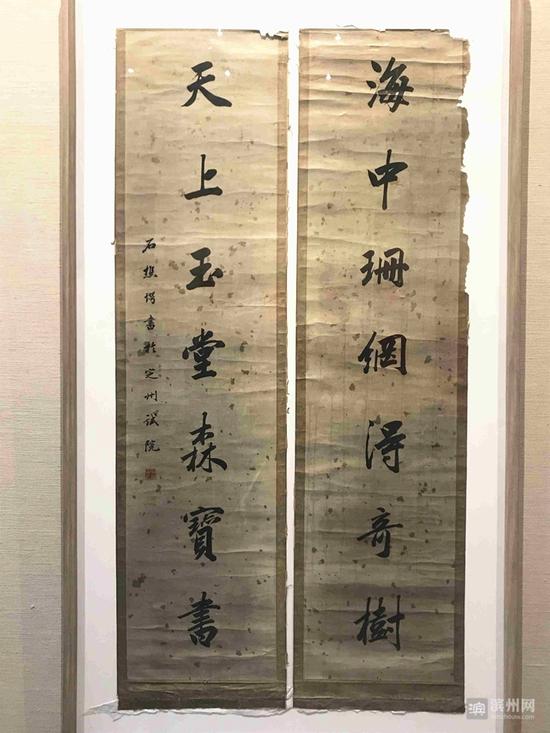 海中珊網得奇樹
天上玉堂森寶書
石樵楷書於定州試院
滨州网